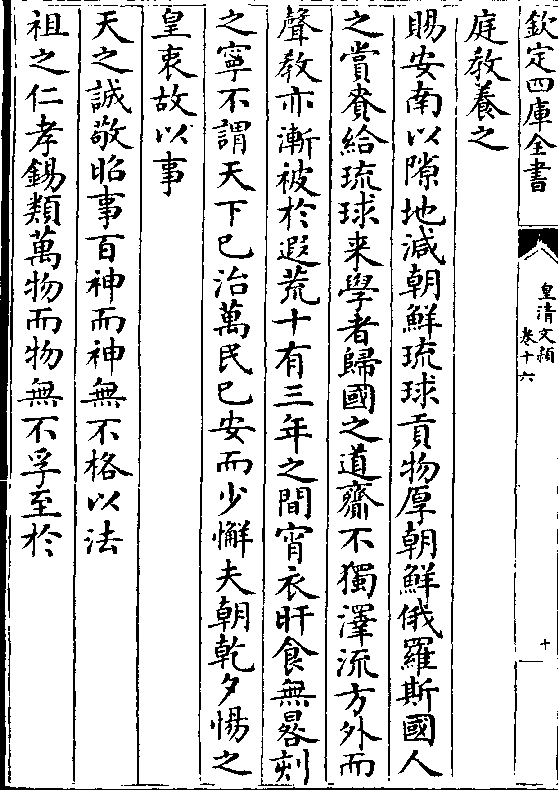 欽定四庫全書
皇清文頴
卷十六
十
庭教養之
賜安南以隙地減朝鮮琉球貢物厚朝鮮俄羅斯國人
之賞賚給琉球来學者歸國之道齎不獨澤流方外而
聲教亦漸被於遐荒十有三年之間宵衣旰食無晷刻
之寧不謂天下已治萬民已安而少懈夫朝乾夕惕之
皇衷故以事
天之誠敬昭事百神而神無不格以法
祖之仁孝錫類萬物而物無不孚至於